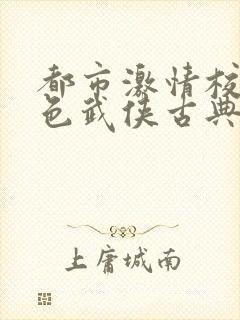 都市激情校
色武侠古典
上庸城南